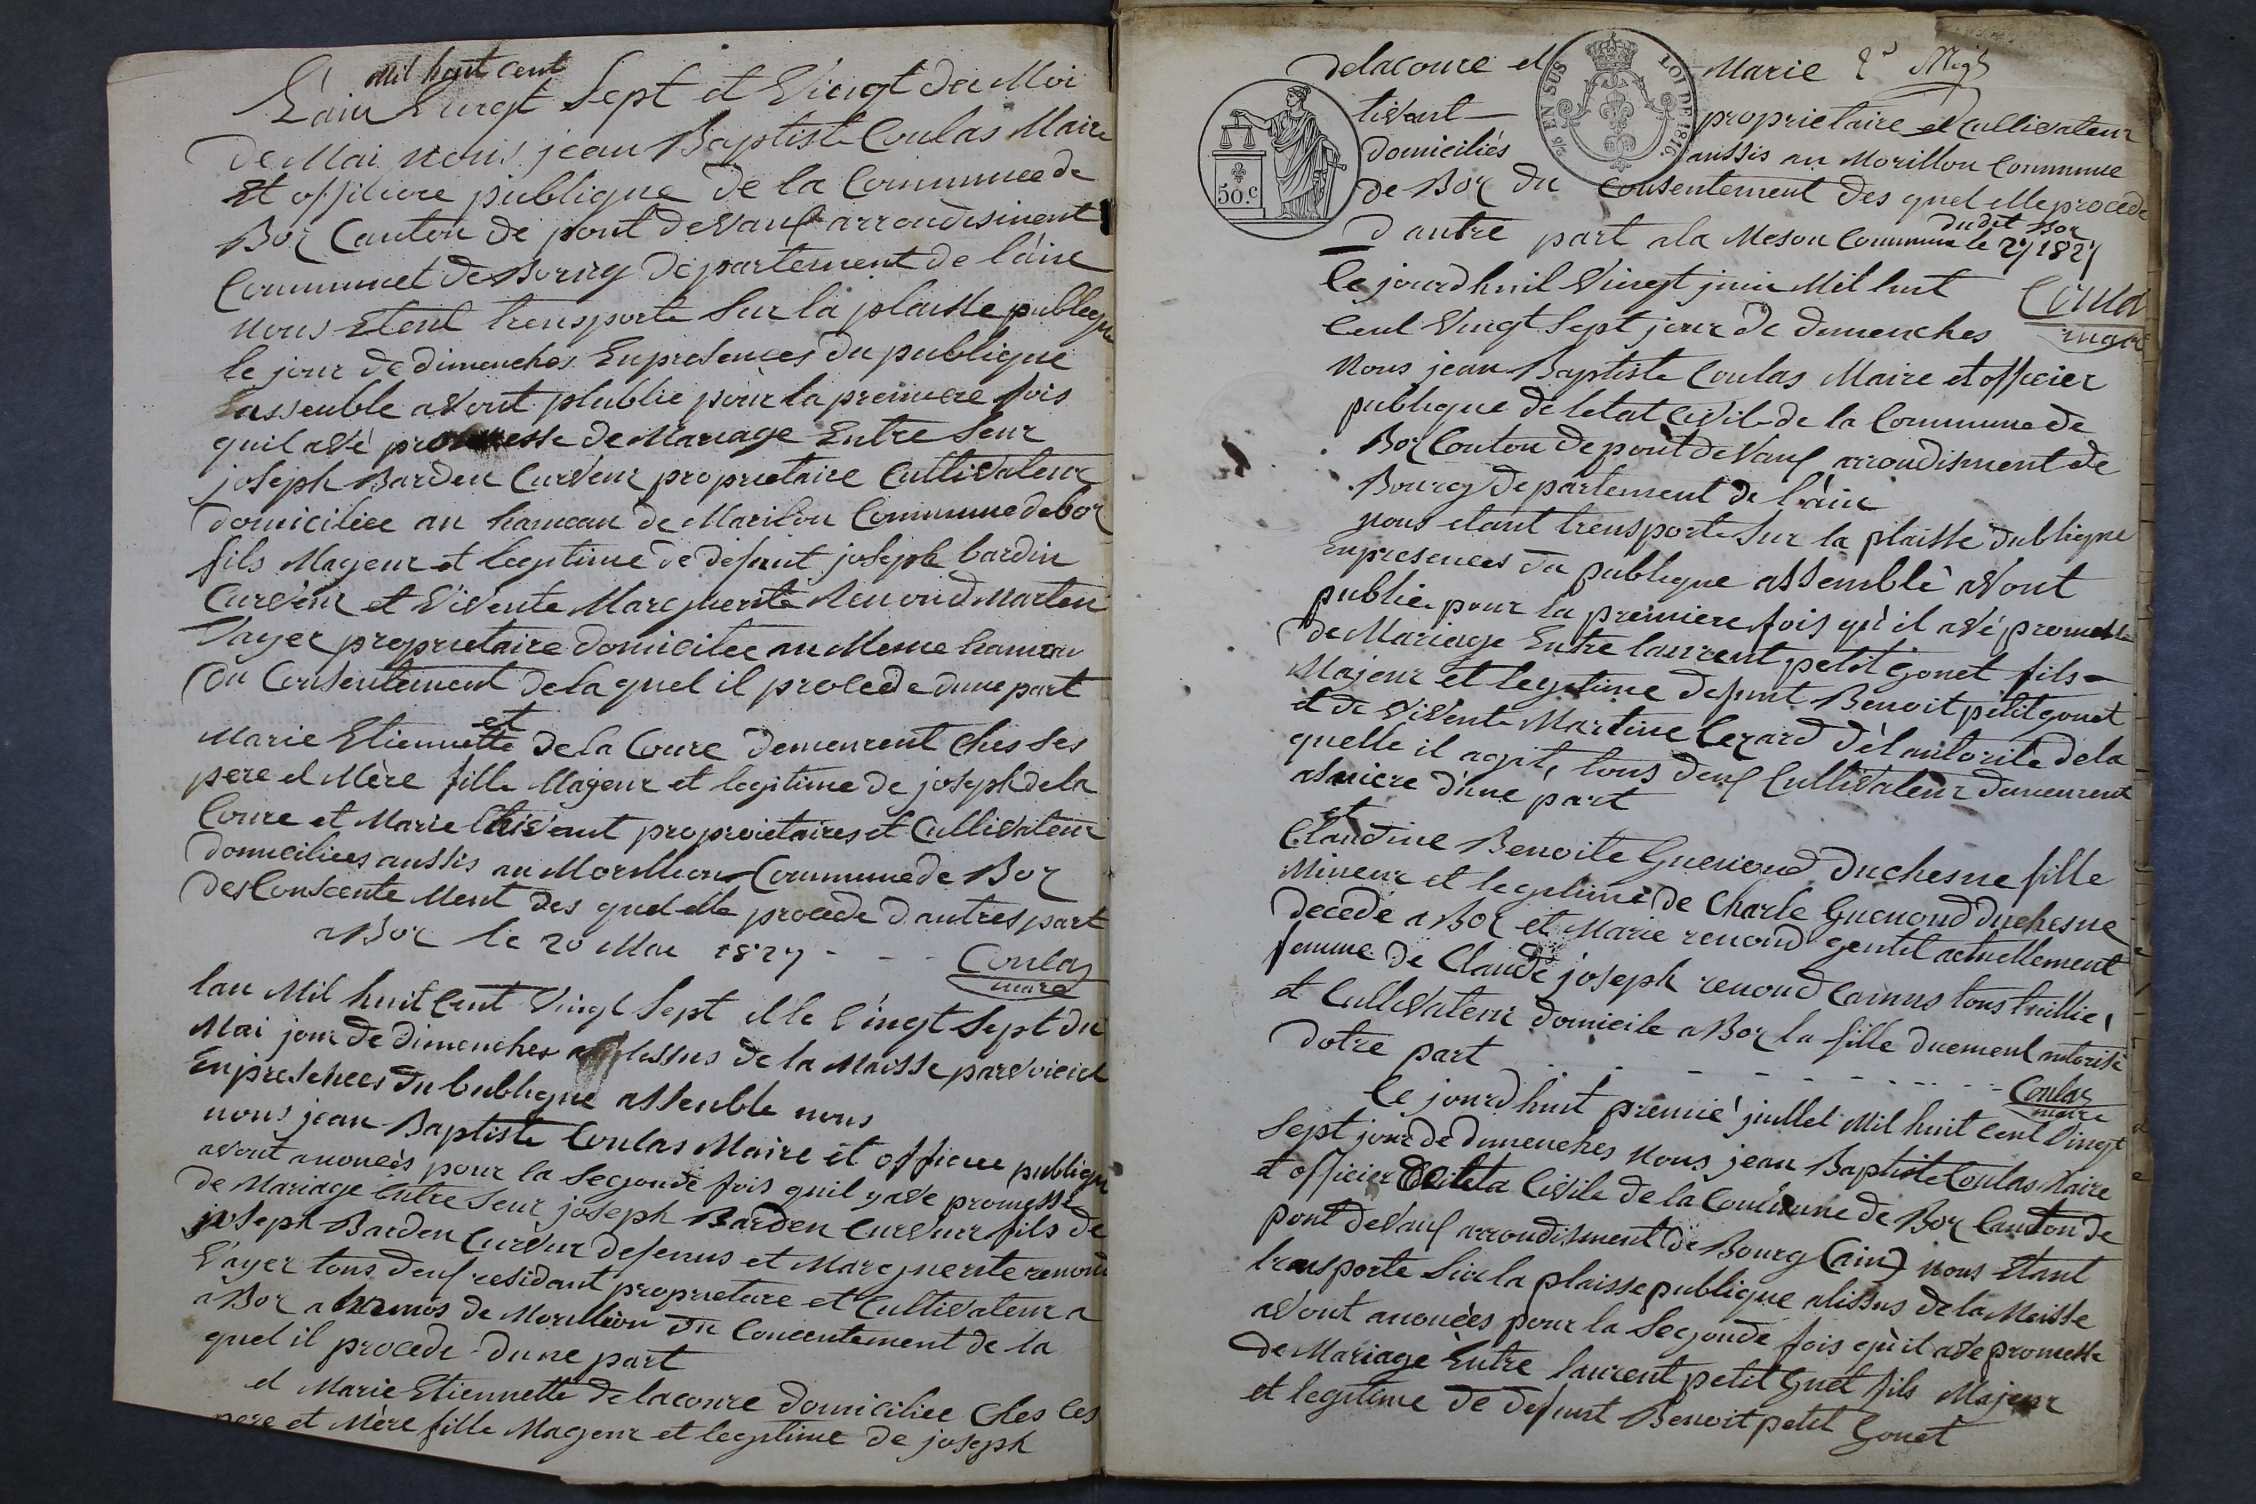 mil huit cent
L'ain Vingt Sept et Vingt du Moi
de Mai nous jean Baptiste Coulas Maire
Et offiliere publique de la Commune de
Boz Canton de pont de Vaux arrondisinent
Communel de Bourg departement de l'ain
nous Etent trensporte Sur la plaisse publeque
le jour de dimenches Enpresences du publique
Eassenble avont plublie pour la premiere fois
quil avé promesse de Mariage Entre Seur
joseph Barden Curveur proprietaire Cultivateur
domiciliee au hameau de Marilon Commune de boz
fils Mageur et legitime de defunt joseph bardin
Curveur et Vivente Marguerite Renoud Marten
Vayer proprietaire domicilee au Meme hameau
du Consentement de la quel il procede dune part
et
Marie Etiennette de la Coure demeurent Ches Ses
pere el Mère fille Mageur et legitime de joseph de la
Coure et Marie Chivant proprietaires et Cultivateur
domiciliees aussis au Morillion Commune de Boz
des Conscente Ment des quel elle procede d'autres part
a Boz le 20 Mai 1827 - - -
Coulas
mare
lan Mil huit Cent Vingt Sept elle Vingt Sept du
Mai jour de dimenches a lissus de la Maisse paroiciel
Enpresences du bublique assenble nous
nous jean Baptiste Coulas Maire et officiee publique
avont anoncès pour la Segonde fois quil yavé promesse
de Mariage Entre Seur joseph Barden Curveur fils de
joseph Barden Curveur defenus et Marguerite renoud
Vayer tous deux residant proprieture et Cultivateur a
a Boz a hamos de Morillion du Concentement de la
quel il procede dune part
et Marie Etiennette de lacoure domiciliee Ches Ces
pere et Mère fille Mageur et legitime de joseph
delacoure et Marie
tivant - proprietaire et Cultivateur
domiciliés aussis au Morillon Commune
de Boz du Consentement des quel elle procede
dudit Boz
d'autre part a la Meson Commune le 27 1827
EN SUS
LOI DE 1816
50.c
Coulas
maire
Ce jourdhuil Vingt juin Mil huit
Cent Vingt Sept jour de dimenches
Nous jean Baptiste Coulas Maire et officier
publique de letat Civil de la Commune de
Boz Conton de pont de Vaux arrondisment de
Bourg departement de l'ain
nous etant trensporte Sur la plaisse dubligue
Enpresences du publique assemblè avont
publie pour la premiere fois qu'il avé promesse
de Mariage Entre laurent petit Gonet fils -
Majeur et legitime defunt Benoit petit gonet
et de Vivente Martine Cezard d'el autorité de la
quelle il agit, tous deux Cultivateur demeurent
asniere d'une part
et
Claudine Benoite Guenoud duchesne fille
Mineur et legitime de Charle Guenoud duchesne
decede a Boz et Marie renoud gentil actuellement
femme de Claude joseph renoud Camus tous
et Cultivateur domicile a Boz la fille duement autorisé
dotre part
Coulas
maire
Ce jourdhuit premié juillet Mil huit Cent Vingt
Sept jour de dimenches Nous jean Baptiste Coulas Maire
et officier de leta Civile de la Commune de Boz Canton de
pont de Vaux arrondisment de Bourg (ain) nous Etant
transporte Sur la plaisse publique alissus de la Maisse
avont anoncèes pour la Segonde fois qu'il avé promesse
de Mariage Entre laurent petit Gnet fils Majeur
et legitime de defunt Benoit petit Gonet